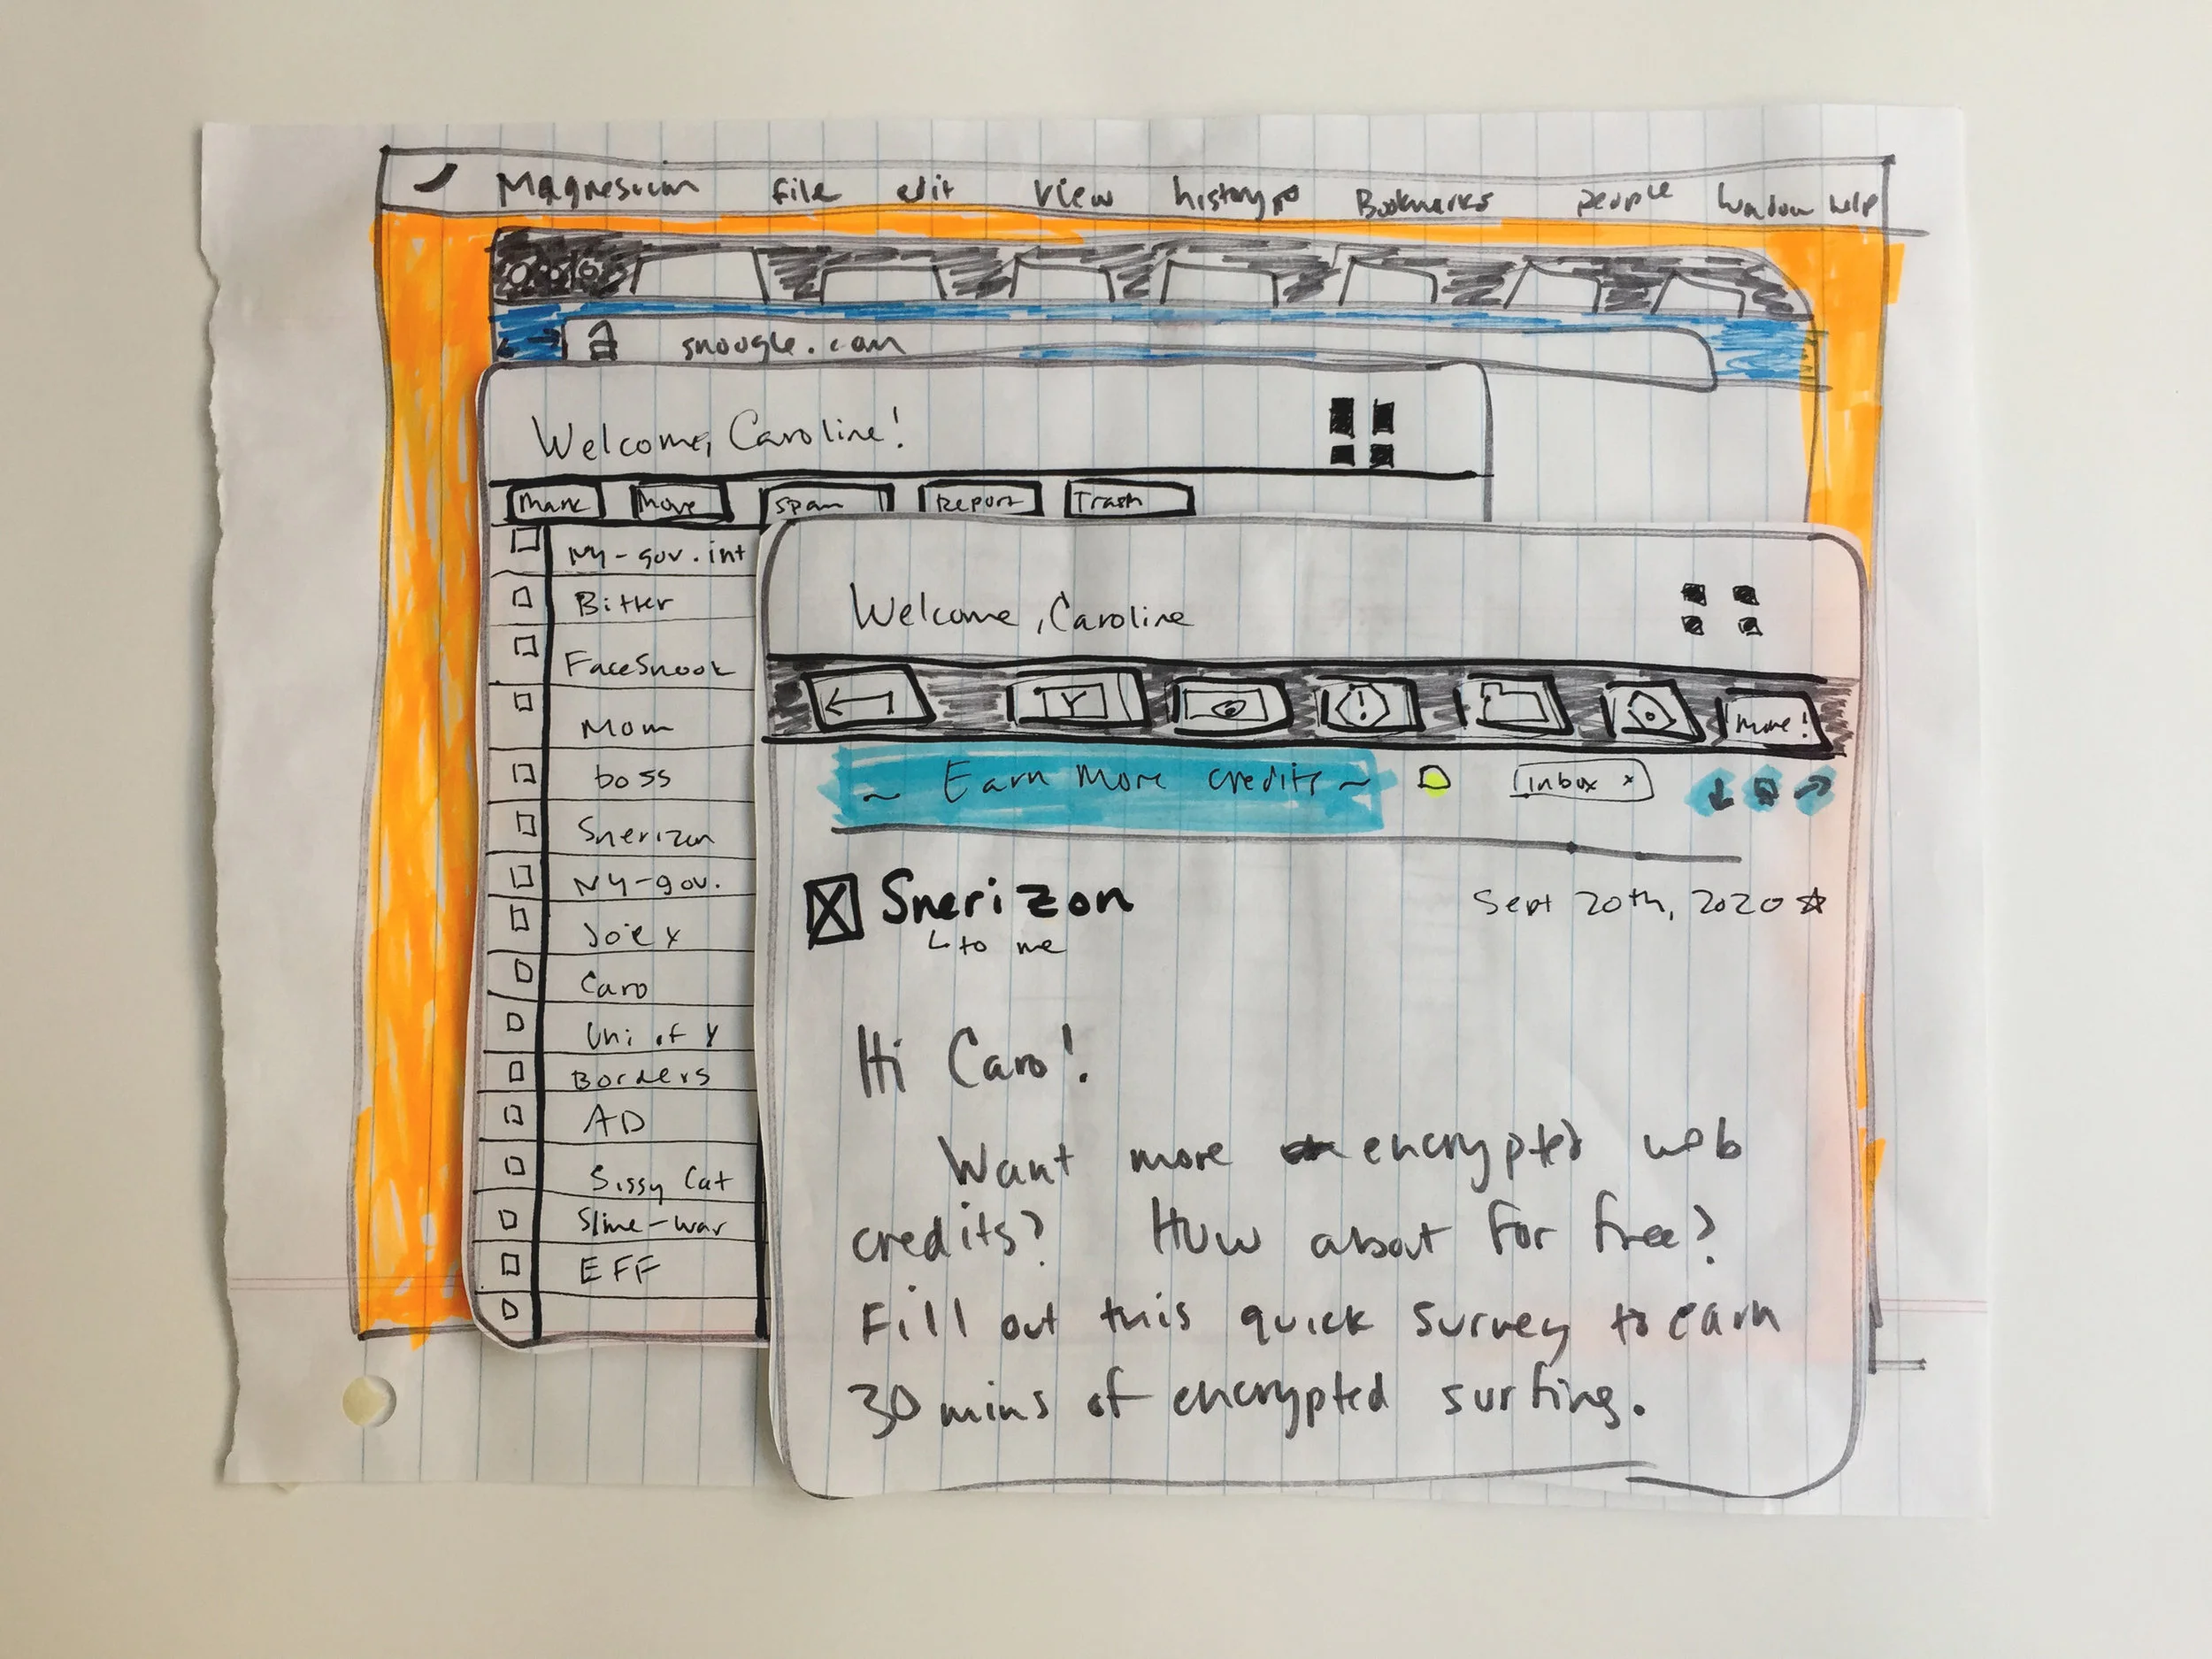 Magnesium file edit view history Bookmarks people window help
snoogle.com
Welcome, Caroline!
Mark Move Span Report Trash
NY-gov.int
Bitter
FaceSnook
Mom
boss
Snerizon
NY-gov.
Joey
Caro
Uni of Y
Borders
AD
Sissy Cat
Slime-war
EFF
Welcome, Caroline
! More!
~ Earn more credits ~ Inbox x
Snerizon Sept 20th, 2020
to me
Hi Caro!
Want more encrypted web
credits? How about for free?
Fill out this quick survey to earn
30 mins of encrypted surfing.